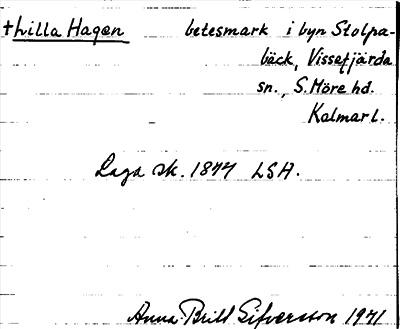 †Lilla Hagen betesmark i byn Stolpa-
bäck, Vissefjärda
sn., S. Möre hd.
Kalmar l.
Laga sk. 1877 LSA.
Anna-Britt Sifversson 1971